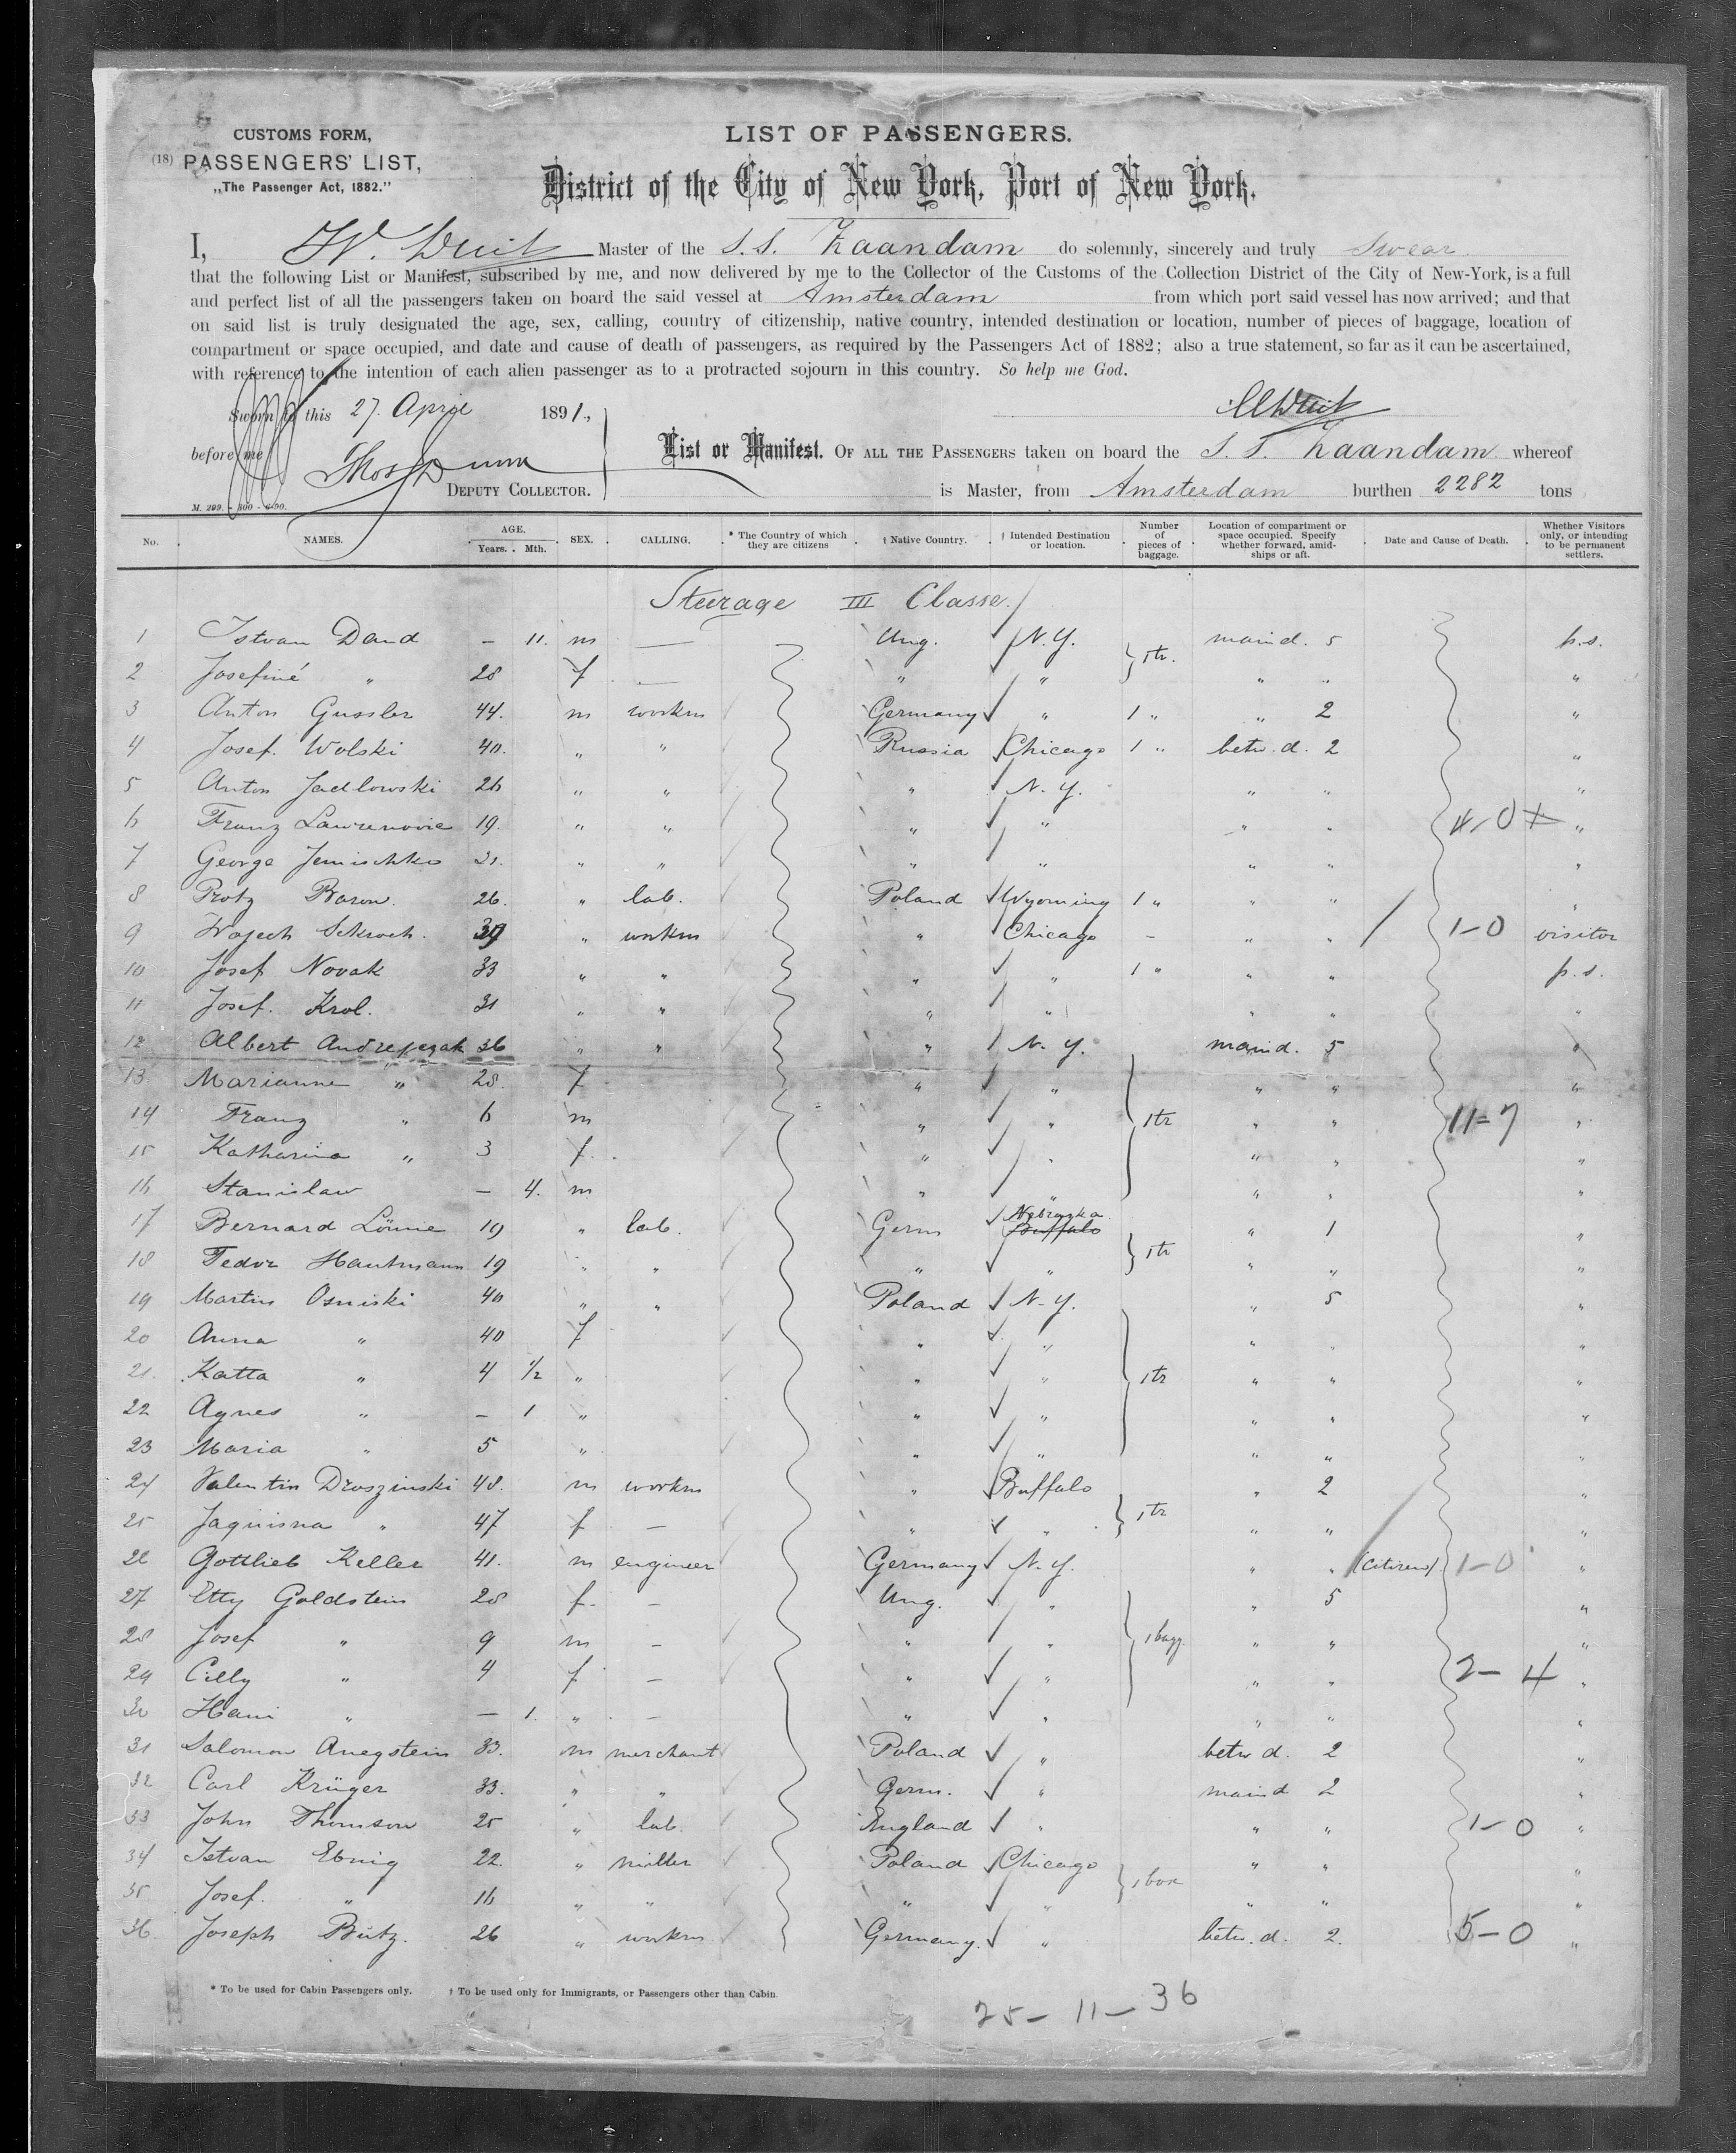 CUSTOMS FORM,
(18) PASSENGERS' LIST,
„The Passenger Act, 1882."
LIST OF PASSENGERS.
District of the City of New York, Port of New York.
I, W. Duit Master of the S.S. Zaandam do solemnly, sincerely and truly swear
that the following List or Manifest, subscribed by me, and now delivered by me to the Collector of the Customs of the Collection District of the City of New-York, is a full
and perfect list of all the passengers taken on board the said vessel at Amsterdam from which port said vessel has now arrived; and that
on said list is truly designated the age, sex, calling, country of citizenship, native country, intended destination or location, number of pieces of baggage, location of
compartment or space occupied, and date and cause of death of passengers, as required by the Passengers Act of 1882; also a true statement, so far as it can be ascertained,
with reference to the intention of each alien passenger as to a protracted sojourn in this country. So help me God.
Sworn to this 27. April 1891.,
before me
Thos Dunn
DEPUTY COLLECTOR.
M. 299. - 800 - 6-90.
List or Manifest. OF ALL THE PASSENGERS taken on board the S. S. Zaandam whereof
is Master, from Amsterdam burthen 2282 tons
No. NAMES. AGE. Years. Mth. SEX. CALLING. * The Country of which they are citizens † Native Country. † Intended Destination or location. Number of pieces of baggage. Location of compartment or space occupied. Specify whether forward, amidships or aft. Date and Cause of Death. Whether Visitors only, or intending to be permanent settlers.
Steerage III Classe.
1 Istvan Dand — 11. m — Ung. N.Y. maind. 5 p.s.
2 Josefiné " 28 f — " " 1tr. " " "
3 Anton Gussler 44. m workm Germany " 1 " " 2 "
4 Josef. Wolski 40. " " Russia Chicago 1 " betw. d. 2 "
5 Anton Jadlowski 26 " " " N. Y. " " "
6 Franz Lawrenovic 19. " " " " " " 4-0 "
7 George Jemischko 31. " " " " " " "
8 Protz Baron. 26. " lab. Poland Wyoming 1 " " " "
9 Wojech Schroch. 39 " workm " Chicago — " " 1-0 visitor
10 Josef Novak 33 " " " " 1 " " " p.s.
11 Josef. Krol. 31 " " " " " " "
12 Albert Andrejczak 36 " " " N. Y. maind. 5 "
13 Marianne " 28. f " " " " "
14 Franz " 6 m " " 1tr " " 11=7 "
15 Katharina " 3 f. " " " " "
16 Stanislaw — 4. m " " " " "
17 Bernard Lönne 19 " lab. Germ Nebraska Buffalo " 1 "
18 Fedor Hautmann 19 " " " " 1tr " " "
19 Martin Osniski 40 " " Poland N-Y. " 5 "
20 Anna " 40 f " " " " "
21. Katta " 4 1/2 " " " 1tr " " "
22 Agnes " — 1 " " " " " "
23 Maria " 5 " " " " " "
24 Valentin Droszinski 48. m workm " Buffalo " 2 "
25 Jaquisna " 47 f — " " 1tr " " "
26 Gottlieb Keller 41. m engineer Germany N.Y. " " (citizen) 1-0 "
27 Etty Goldstein 28 f. — Ung. " " 5 "
28 Josef " 9 m — " " 1bagg. " " "
29 Cilly " 4 f — " " " " 2-4 "
30 Hani " — 1. " — " " " " "
31 Salomon Anegstein 33. m merchant Poland " betw d. 2 "
32 Carl Krüger 33. " " Germ. " maind 2 "
33 John Thomson 25 " lab. England " " " 1-0 "
34 Istvan Ebnig 22. " miller Poland Chicago " " "
35 Josef. " 16 " " " " 1box " " "
36. Joseph Bütz. 26 " workm Germany. " betw. d. 2. 5-0 "
* To be used for Cabin Passengers only. † To be used only for Immigrants, or Passengers other than Cabin.
25- 11- 36